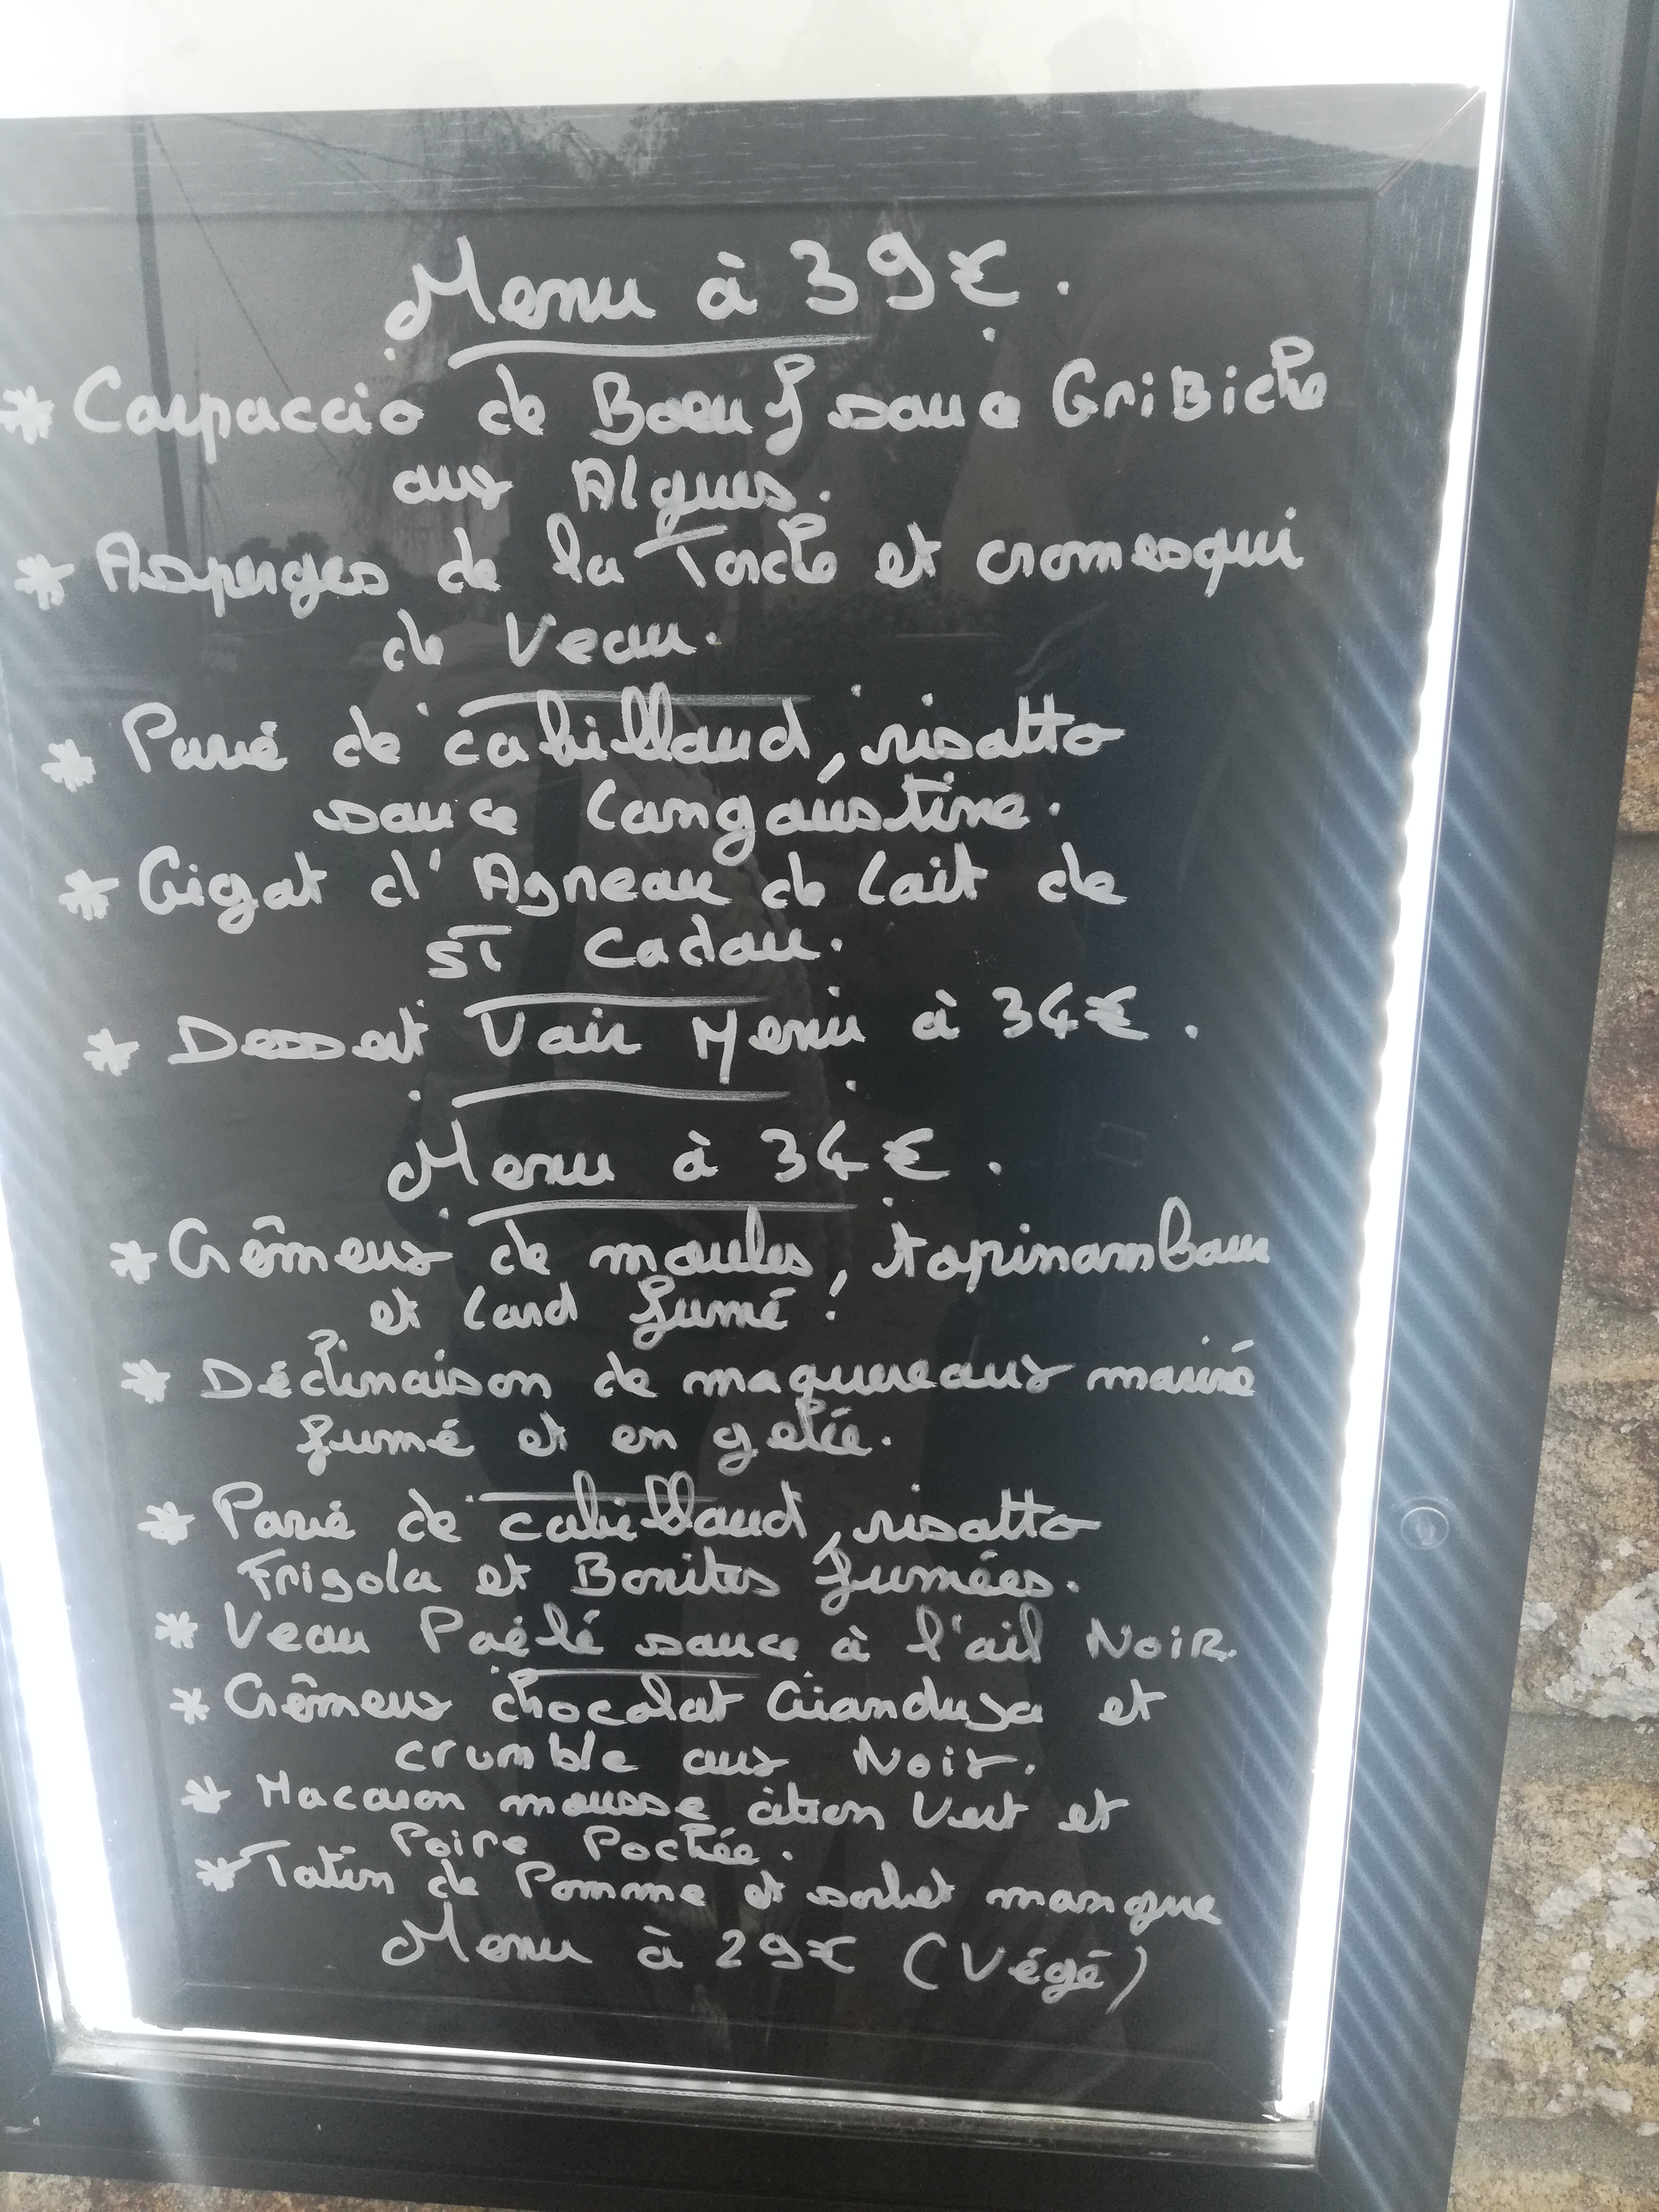 Menu à 39€.
* Carpaccio de Boeuf sauce GriBiche
aux Algues.
* Asperges de la Torche et cromesqui
de Veau.
* Pavé de cabillaud, risotto
sauce Langoustine.
* Gigot d'Agneau de Lait de
ST Cadou.
* Dessert Voir Menu à 34€.
Menu à 34€.
* Crêmeux de moules, topinambour
et Lard fumé.
* Déclinaison de maquereaux mariné
fumé et en gelée.
* Pavé de cabillaud, risotto
Frigola et Bonites fumées.
* Veau Poêlé sauce à l'ail NoiR.
* Crêmeux chocolat Gianduja et
crumble aux Noix.
* Macaron mousse citron Vert et
Poire Pochée.
* Tatin de Pomme et sorbet mangue
Menu à 29€ (Végé)